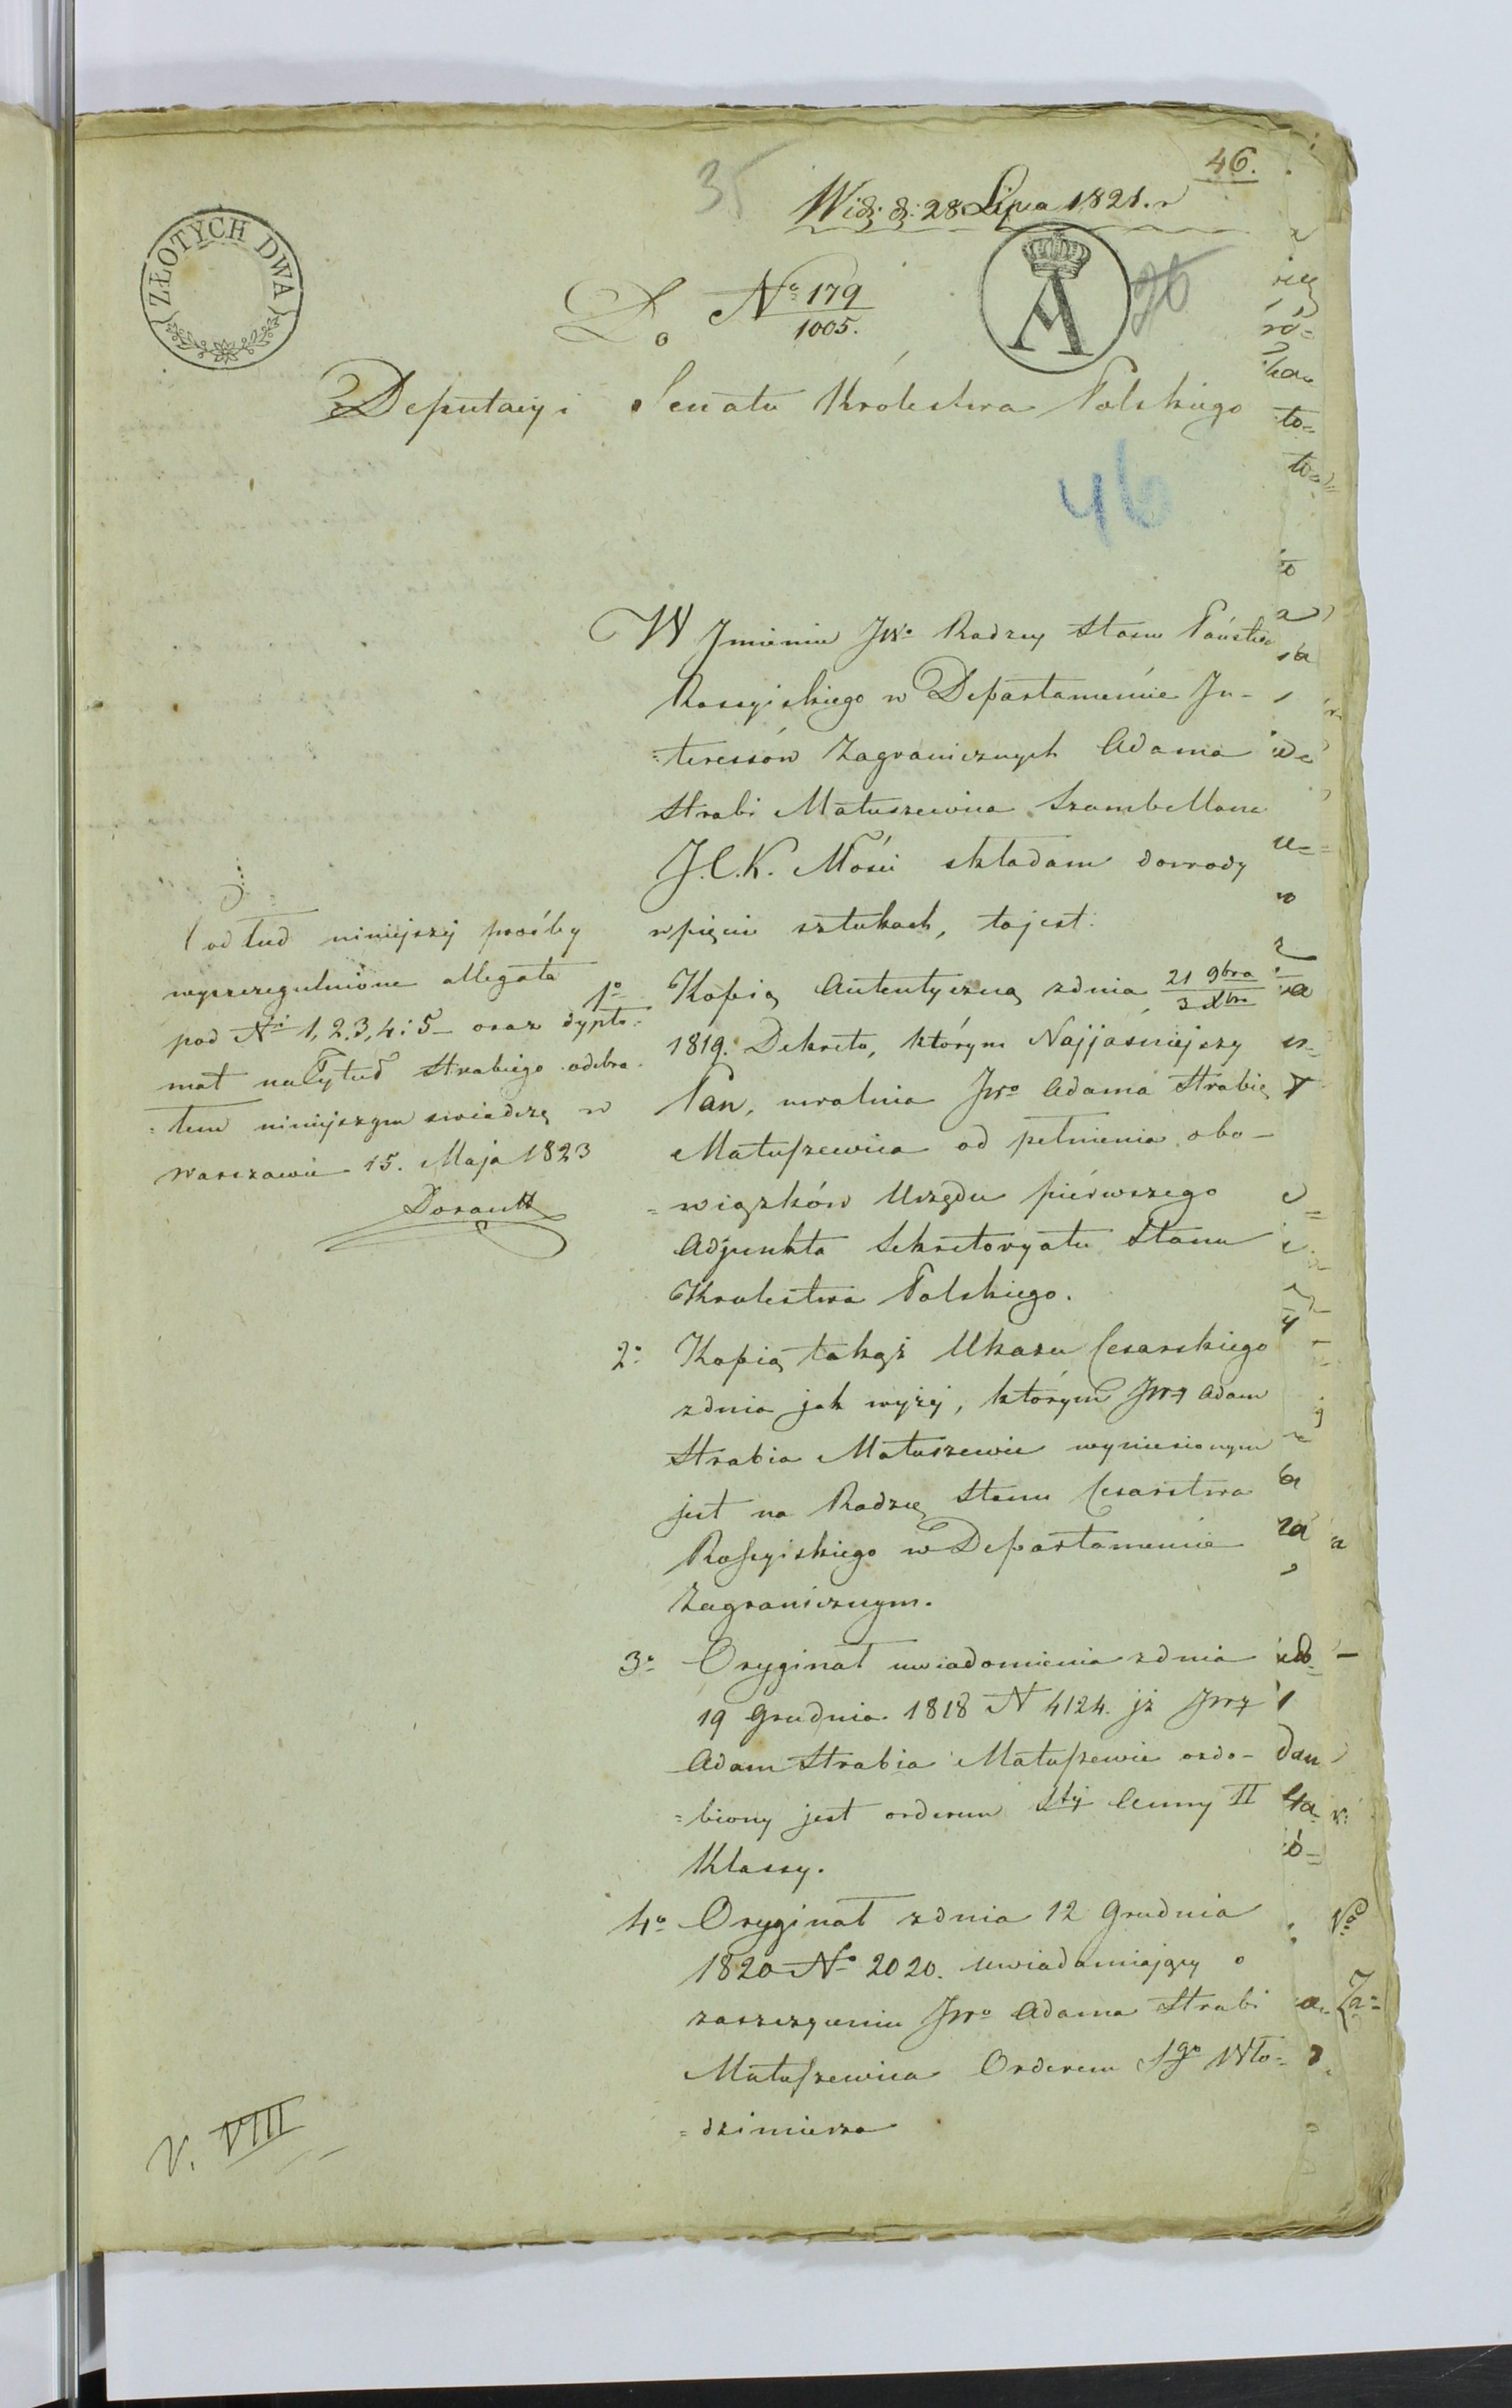 46.
35
Widz: d: 28 Lipca 1821. r
ZŁOTYCH DWA
Do
Nº 179
1005.
A
Deputacyi Senatu Królestwa Polskiego
46
W Jmieniu JWº Radzcy Stanu Państwa
Rossyiskiego w Departamencie Jn-
=teressów Zagranicznych Adama
Hrabi Matuszewica Szambellana
J.C.K. Mości składam dowody
w pięciu sztukach, to jest:
1º Kopią Autentyczną z dnia 21 9bra / 3 Xbra
1819. Dekretu, którym Najjaśniejszy
Pan, uwalnia JWº Adama Hrabię
Matuszewica od pełnienia obo-
=wiązków Urzędu piérwszego
Adjunkta Sekretaryatu Stanu
Krolestwa Polskiego.
2º Kopią takąż Ukazu Cesarskiego
z dnia jak wyżéj, którym JW Adam
Hrabia Matuszewic wyniesionym
jest na Radzcę Stanu Cesarstwa
Rossyiskiego w Departamencie
Zagranicznym.
3º Oryginał uwiadomienia z dnia
19 Grudnia 1818 N 4124. iż JW
Adam Hrabia Matuszewic ozdo-
=biony jest orderem Stéj Anny II
Klassy.
4º Oryginał z dnia 12 Grudnia
1820 Nº 2020. uwiadamiający o
zaszczyceniu JWº Adama Hrabi
Matuszewica Orderem Sgo Wło-
=dzimierza
Pod tud niniejszéj prośby
wyszczegulnione allegata
pod Nri 1, 2, 3, 4 i 5 – oraz dyplo=
mat na Tytuł Hrabiego odebra-
=łem niniejszym świadczę w
Warszawie 15. Maja 1823
V. VIII